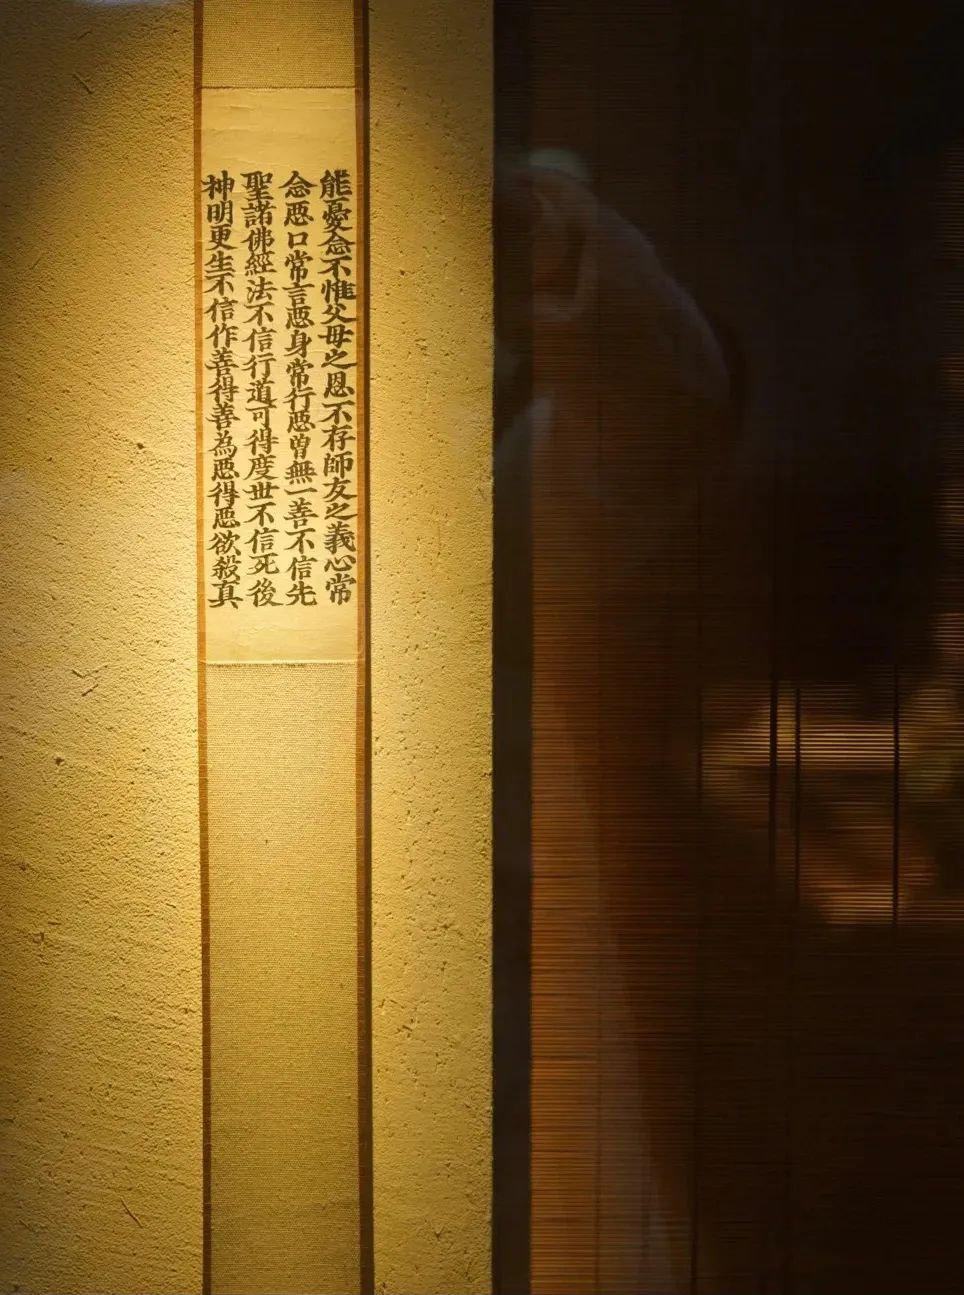 能憂念不惟父母之恩不存師友之義心常
念惡口常言惡身常行惡曽無一善不信先
聖諸佛經法不信行道可得度世不信死後
神明更生不信作善得善為惡得惡欲殺真